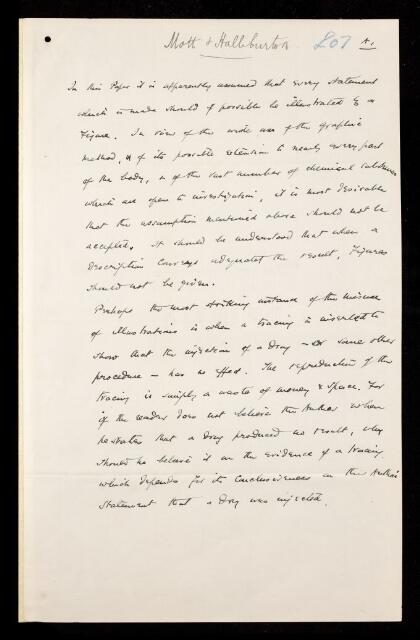 Mott & Halliburton 207 A.
In this Paper it is apparently assumed that every statement
which is made should if possible be illustrated by a
Figure. In view of the wide use of the graphic
method, & of its possible extension to nearly every part
of the body, & of the vast number of chemical substances
which are open to investigation, it is most desirable
that the assumption mentioned above should not be
accepted. It should be understood that when a
Description conveys adequately the result, Figures
should not be given.
Perhaps the most striking instance of the misuse
of illustrations is when a tracing is inserted to
show that the injection of a drug – or some other
procedure – has no effect. The reproduction of the
tracing is simply a waste of money & space. For
if the reader does not believe the Author when
he states that a drug produced no result, why
should he believe it on the evidence of a tracing
which depends for its conclusiveness on the Author's
statement that a drug was injected.